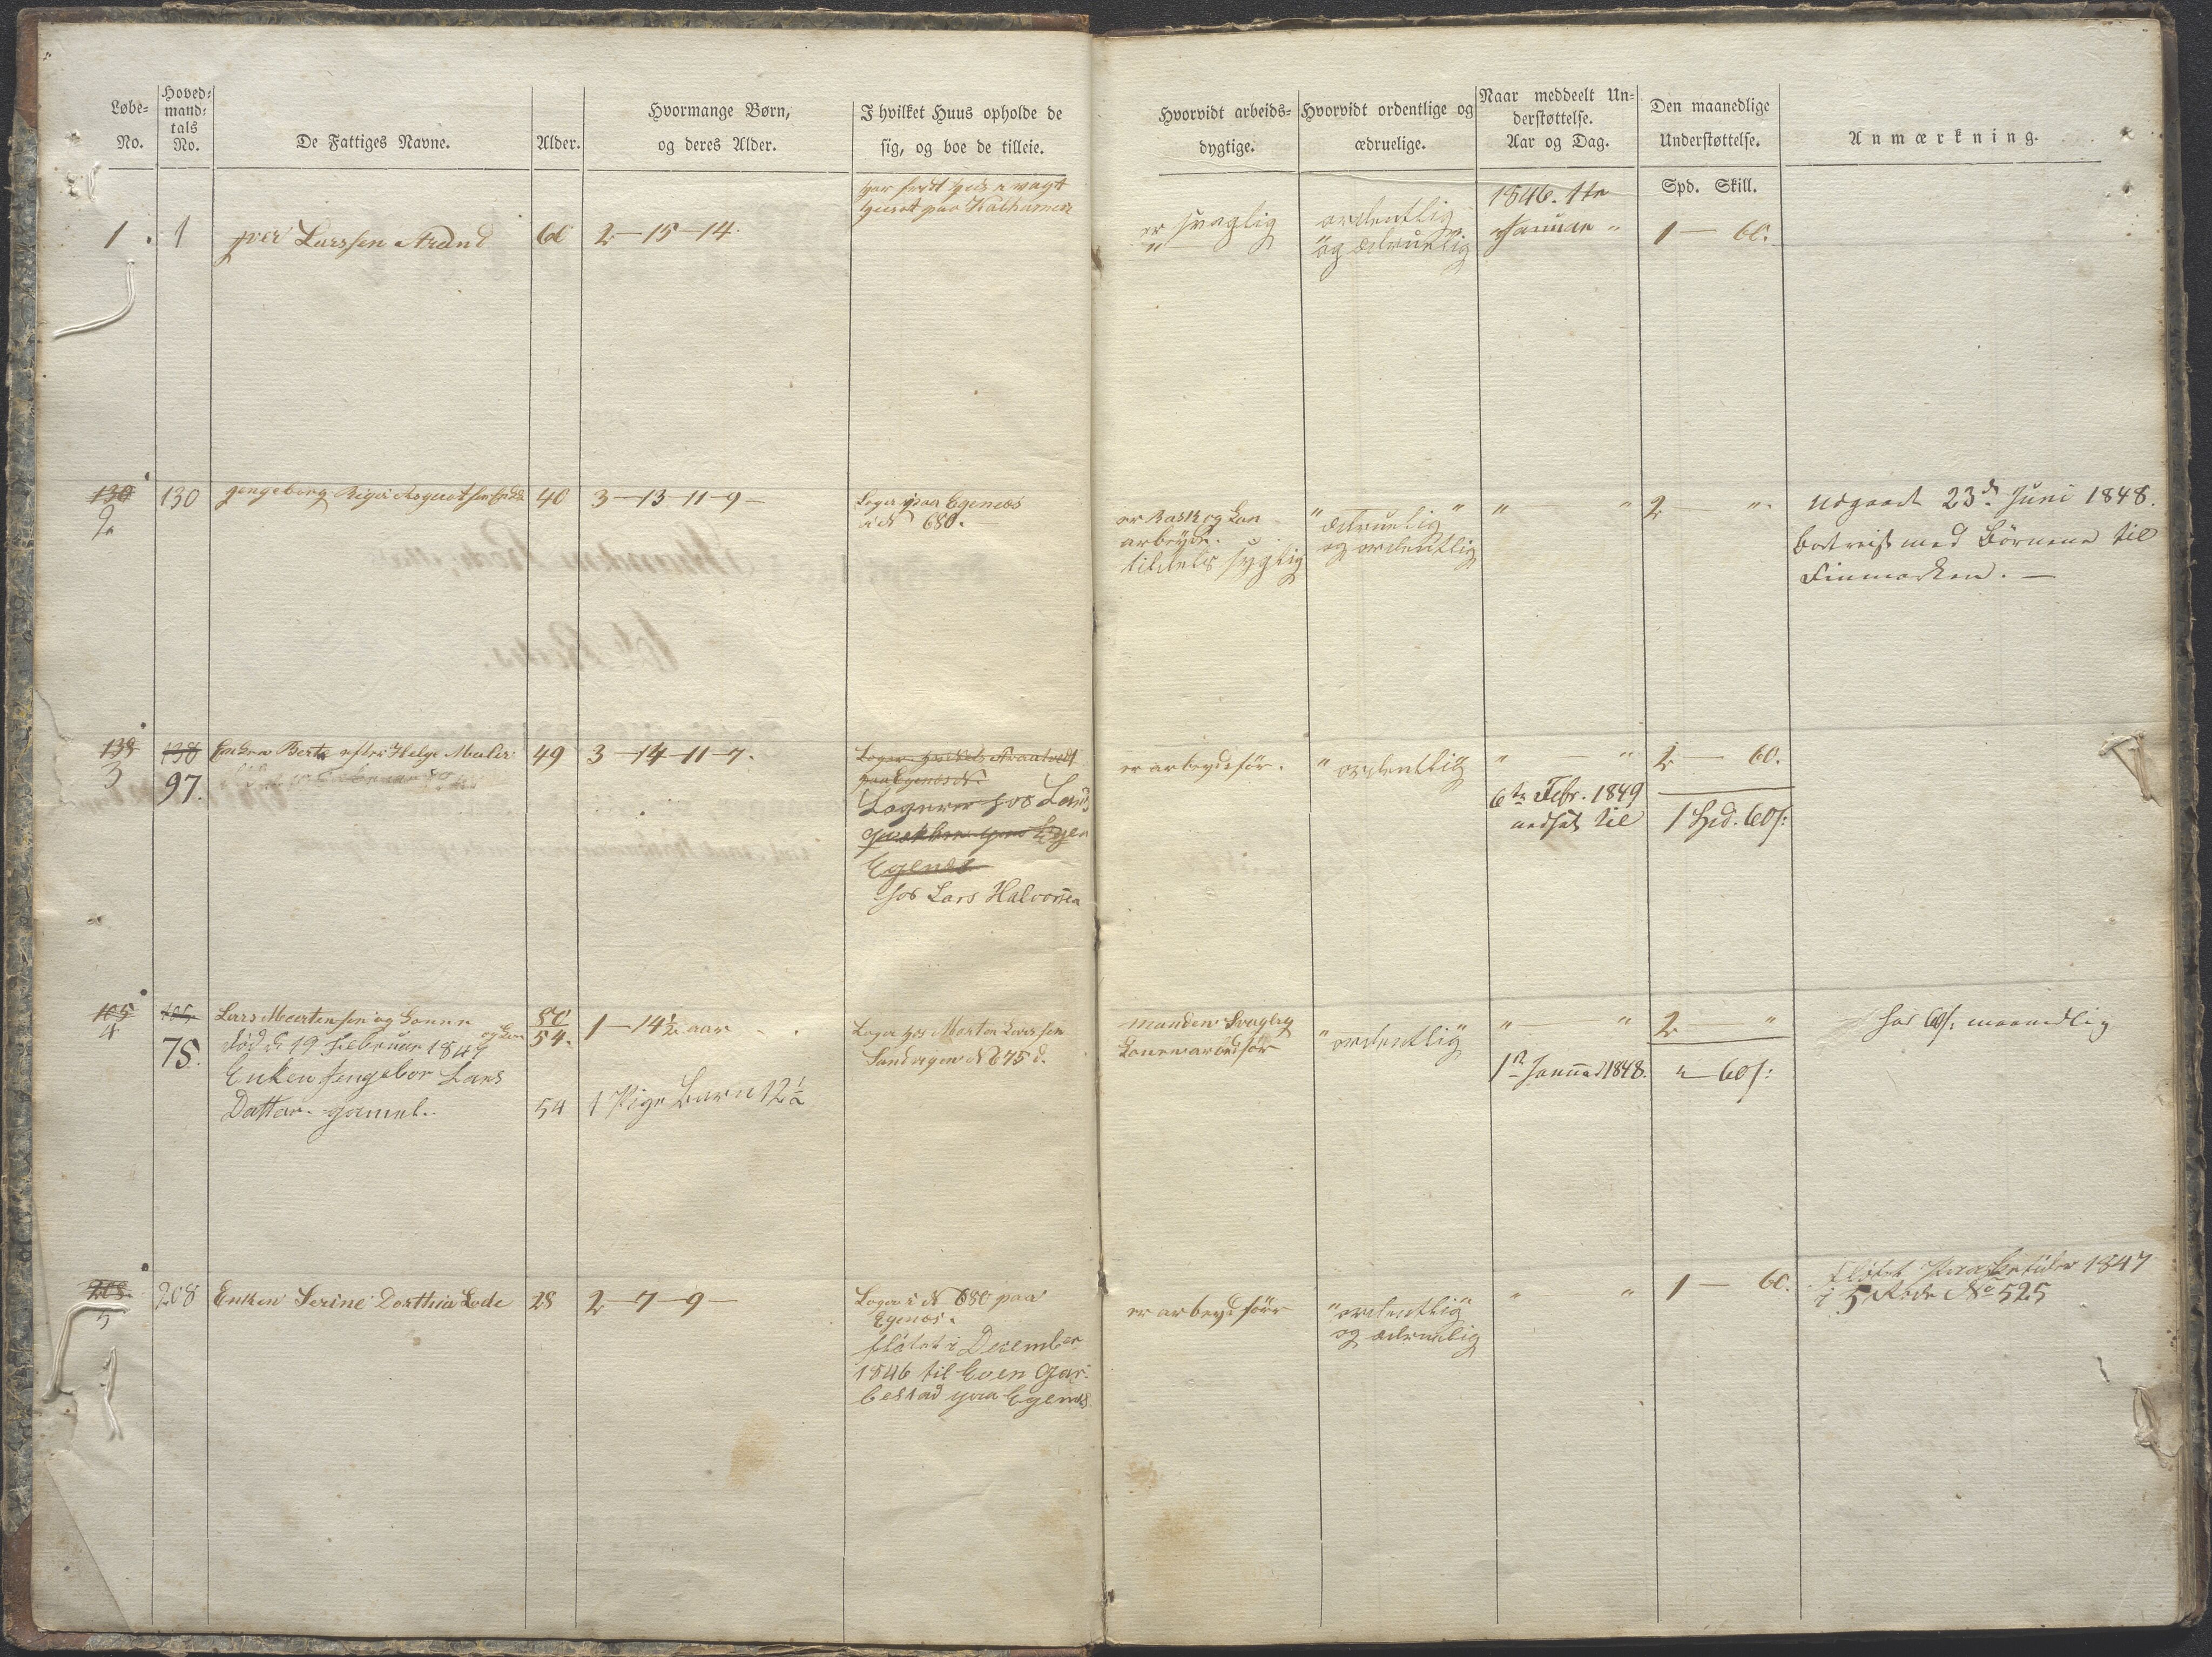 Løbe-
No.
Hoved-
mand-
tals
No.
De Fattiges Navne.
Alder.
Hvormange Børn,
og deres Alder.
I hvilket Huus opholde de
sig, og boe de tilleie.
Hvorvidt arbeids-
dygtige.
Hvorvidt ordentlige og
ædruelige.
Naar meddeelt Un-
derstøttelse.
Aar og Dag.
Den maanedlige
Understøttelse.
Anmærkning.
Spd. Skill.
1 1 Larssen 60 2-15-14.
paa
er svaglig
ordentlig
og ædruelig
1846. 1te
Januar
1 — 60.
130
2
130 40 3-13-11-9-
Loger paa Egenæs
i № 680.
er Rask og kan
arbeyde.
tildels syglig
" ædruelig "
og ordentlig
" "
2 "
Udgaaet 23de Juni 1848.
bortreist med Börnene til
Finmarken. —
138
3
138
97.
Enken Berte efter Helge 49 3-14-11-7.
paa Egenæs
Logerer hos Lars
Egenæs
hos Lars Halvorsen
er arbeydsför.
" ordentlig
" "
6te Febr. 1849
nedsat til
2 — 60.
1 Spd. 60 s:
105
4
105
75.
Lars Mortensen og Konne
död d 19 Februar 1847
Enken Jengebor Lars
Datter. gamel.
50
54.
54
1-14½ aar
1 Pige Barn 12½
Loger hos Morten Larssen
Sandvigen № 675 d.
Manden Svaglig
Konen arbeidsför
" ordentlig "
" "
1te Januar 1848.
2 "
" 60 s:
har 60 s: maanedlig
208
5
208 Enken Serine Dorthia Lode 28 2-7-9-
Loger i № 680 paa
Egenæs.
flötet i December
1846 til Even Gar-
bestad paa Egenæs
er arbeydsför
" ordentlig "
og ædruelig
" "
1 — 60.
flötet 1847
i 5 Rode No 525